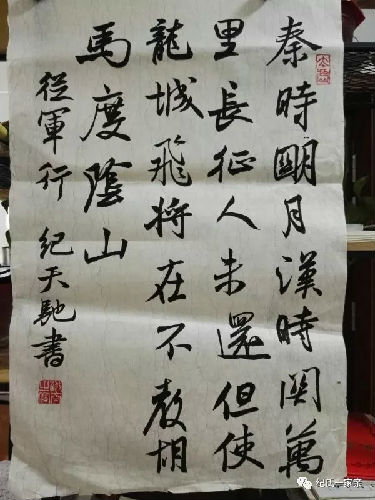 秦時明月漢時関萬
里長征人未還但使
龍城飛将在不教胡
馬度陰山
從軍行 紀天馳書